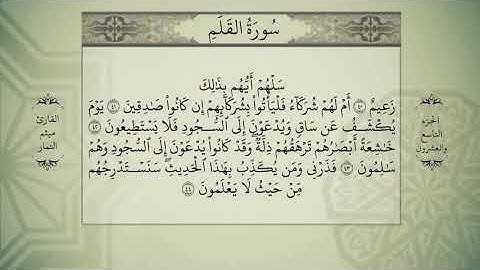 سُورَةُ القَلَمِ
سَلْهُمْ أَيُّهُم بِذَٰلِكَ
زَعِيمٌ ٤٠ أَمْ لَهُمْ شُرَكَاءُ فَلْيَأْتُوا۟ بِشُرَكَائِهِمْ إِن كَانُوا۟ صَادِقِينَ ٤١ يَوْمَ
يُكْشَفُ عَن سَاقٍ وَيُدْعَوْنَ إِلَى السُّجُودِ فَلَا يَسْتَطِيعُونَ ٤٢
خَاشِعَةً أَبْصَارُهُمْ تَرْهَقُهُمْ ذِلَّةٌ وَقَدْ كَانُوا۟ يُدْعَوْنَ إِلَى السُّجُودِ وَهُمْ
سَالِمُونَ ٤٣ فَذَرْنِي وَمَن يُكَذِّبُ بِهَٰذَا الْحَدِيثِ سَنَسْتَدْرِجُهُم
مِّنْ حَيْثُ لَا يَعْلَمُونَ ٤٤
الجزء
التاسع
والعشرون
القارئ
ميثم
التمار